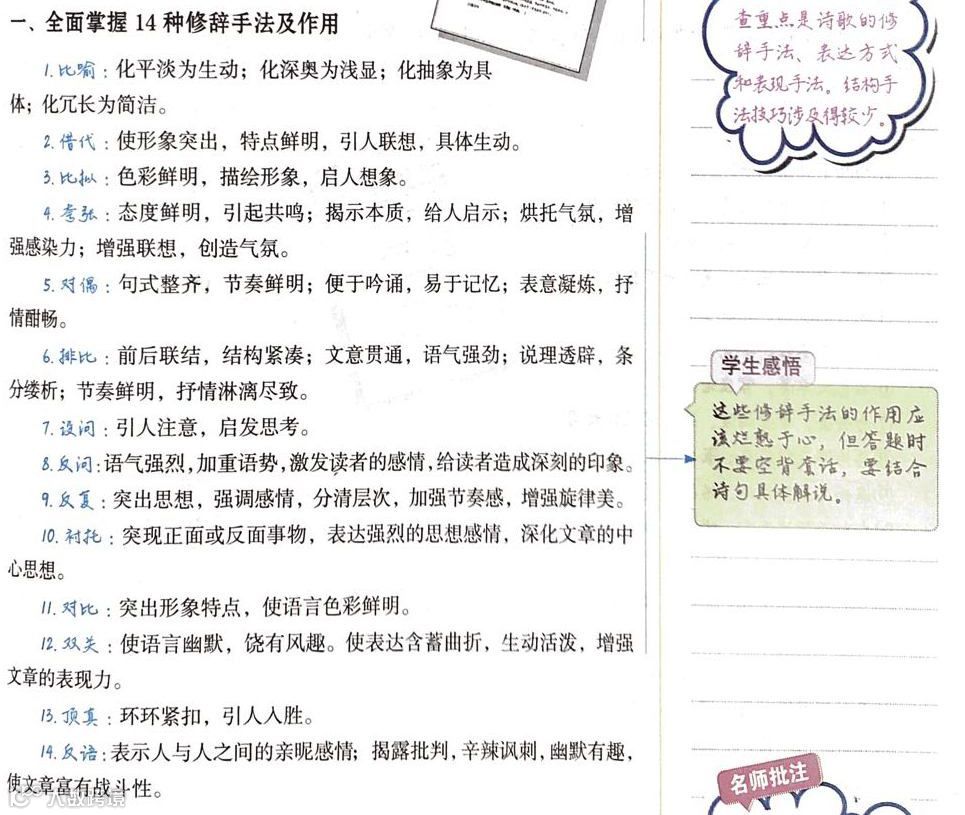 一、全面掌握 14 种修辞手法及作用
1.比喻：化平淡为生动；化深奥为浅显；化抽象为具
体；化冗长为简洁。
2.借代：使形象突出，特点鲜明，引人联想，具体生动。
3.比拟：色彩鲜明，描绘形象，启人想象。
4.夸张：态度鲜明，引起共鸣；揭示本质，给人启示；烘托气氛，增
强感染力；增强联想，创造气氛。
5.对偶：句式整齐，节奏鲜明；便于吟诵，易于记忆；表意凝炼，抒
情酣畅。
6.排比：前后联结，结构紧凑；文意贯通，语气强劲；说理透辟，条
分缕析；节奏鲜明，抒情淋漓尽致。
7.设问：引人注意，启发思考。
8.反问：语气强烈，加重语势，激发读者的感情，给读者造成深刻的印象。
9.反复：突出思想，强调感情，分清层次，加强节奏感，增强旋律美。
10.衬托：突现正面或反面事物，表达强烈的思想感情，深化文章的中
心思想。
11.对比：突出形象特点，使语言色彩鲜明。
12.双关：使语言幽默，饶有风趣。使表达含蓄曲折，生动活泼，增强
文章的表现力。
13.顶真：环环紧扣，引人入胜。
14.反语：表示人与人之间的亲昵感情；揭露批判，辛辣讽刺，幽默有趣，
使文章富有战斗性。
查重点是诗歌的修
辞手法、表达方式
和表现手法。结构手
法技巧涉及得较少。
学生感悟
这些修辞手法的作用应
该烂熟于心，但答题时
不要空背套话，要结合
诗句具体解说。
名师批注
大数跨境